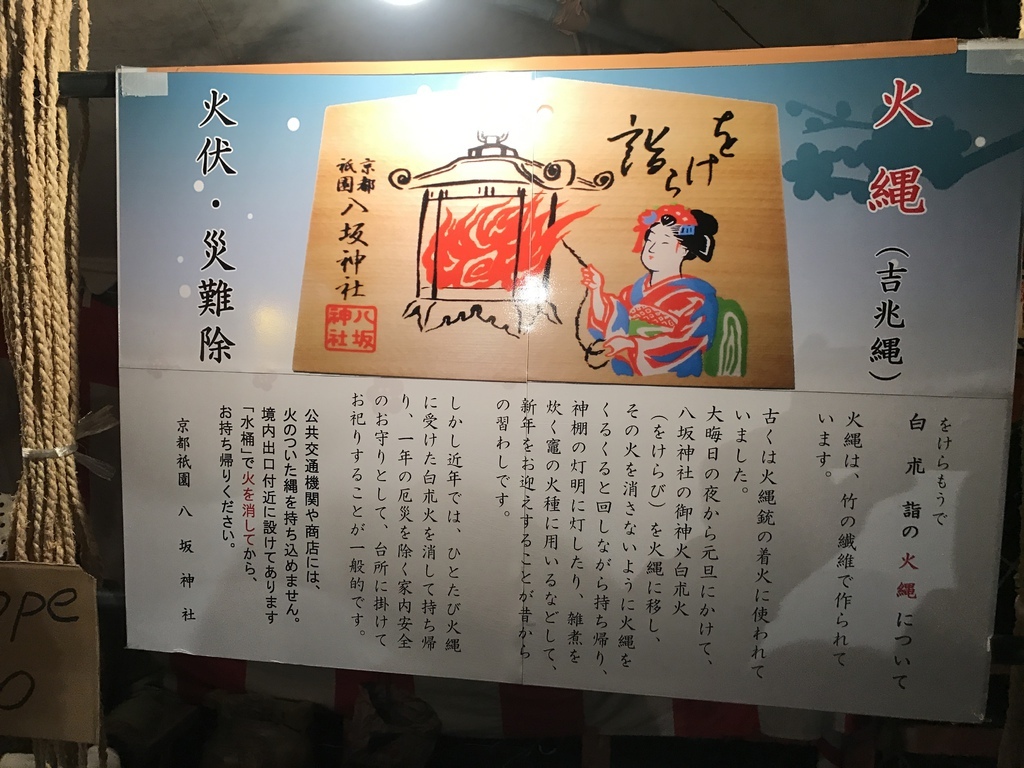 火縄
(吉兆縄)
をけら
詣
京都
祇園
八坂神社
八坂
神社
火伏・災難除
をけらもうで
白朮詣の火縄について
火縄は、竹の繊維で作られて
います。
古くは火縄銃の着火に使われて
いました。
大晦日の夜から元旦にかけて、
八坂神社の御神火白朮火
(をけらび)を火縄に移し、
その火を消さないように火縄を
くるくると回しながら持ち帰り、
神棚の灯明に灯したり、雑煮を
炊く竈の火種に用いるなどして、
新年をお迎えすることが昔から
の習わしです。
しかし近年では、ひとたび火縄
に受けた白朮火を消して持ち帰
り、一年の厄災を除く家内安全
のお守りとして、台所に掛けて
お祀りすることが一般的です。
公共交通機関や商店には、
火のついた縄を持ち込めません。
境内出口付近に設けてあります
「水桶」で火を消してから、
お持ち帰りください。
京都祇園 八坂神社